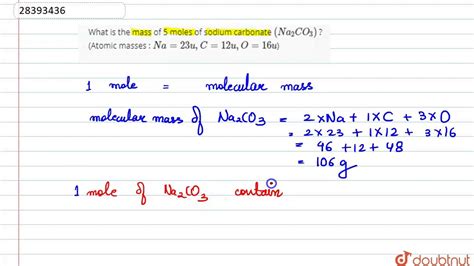 28393436
What is the mass of 5 moles of sodium carbonate (Na₂CO₃) ?
(Atomic masses : Na = 23u, C = 12u, O = 16u)
1 mole = molecular mass
molecular mass of Na₂CO₃ = 2×Na + 1×C + 3×O
= 2×23 + 1×12 + 3×16
= 46 + 12 + 48
= 106 g
1 mole of Na₂CO₃ contain
doubtnut